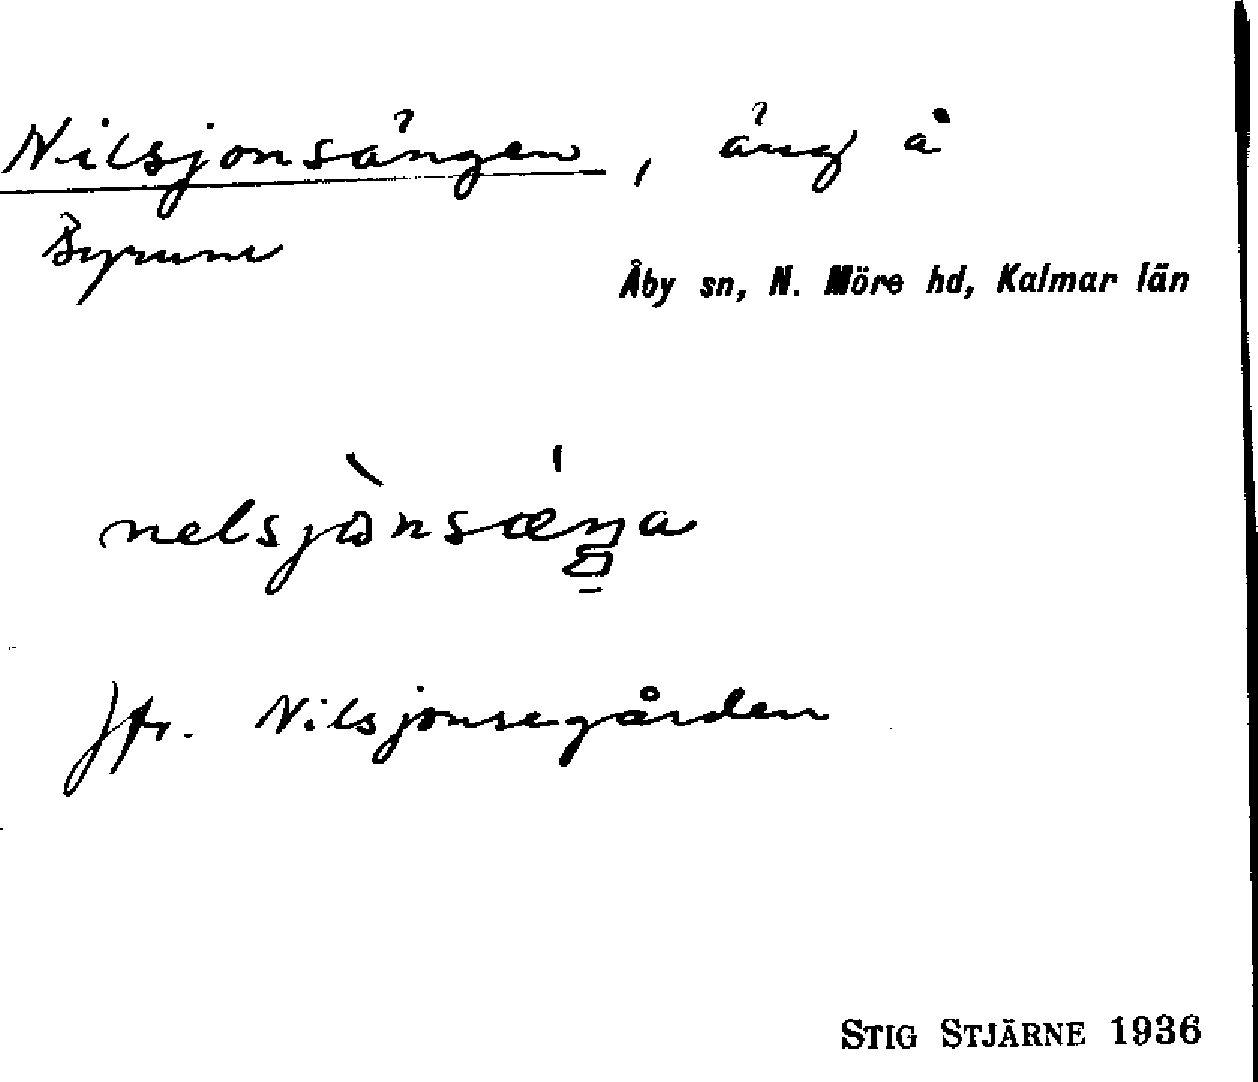 Nilsjonsängen, äng å
Byrum
Åby sn, N. Möre hd, Kalmar län
nelsjònsæ̍ŋa
Jfr. Nilsjonsegården
STIG STJÄRNE 1936